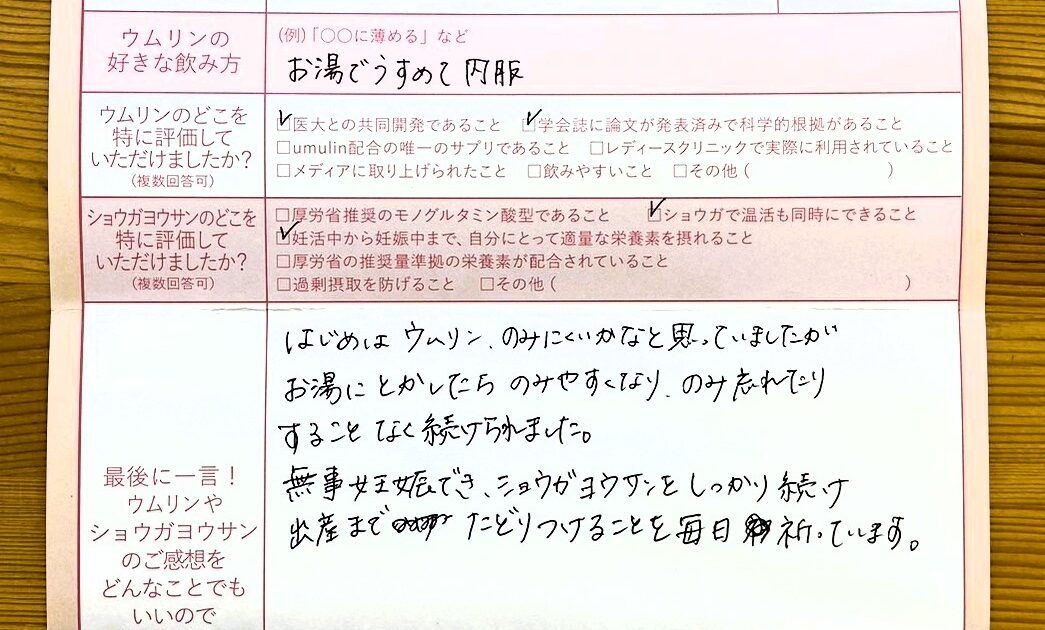 ウムリンの
好きな飲み方
(例)「○○に薄める」など
お湯でうすめて内服
ウムリンのどこを
特に評価して
いただけましたか?
(複数回答可)
☑医大との共同開発であること ☑学会誌に論文が発表済みで科学的根拠があること
□umulin配合の唯一のサプリであること □レディースクリニックで実際に利用されていること
□メディアに取り上げられたこと □飲みやすいこと □その他( )
ショウガヨウサンのどこを
特に評価して
いただけましたか?
(複数回答可)
□厚労省推奨のモノグルタミン酸型であること ☑ショウガで温活も同時にできること
☑妊活中から妊娠中まで、自分にとって適量な栄養素を摂れること
□厚労省の推奨量準拠の栄養素が配合されていること
□過剰摂取を防げること □その他( )
最後に一言!
ウムリンや
ショウガヨウサン
のご感想を
どんなことでも
いいので
はじめは ウムリン、のみにくいかなと思っていましたが
お湯に とかしたら のみやすくなり、のみ忘れたり
すること なく続けられました。
無事妊娠でき、ショウガヨウサンをしっかり続け
出産まで たどりつけることを毎日 祈っています。